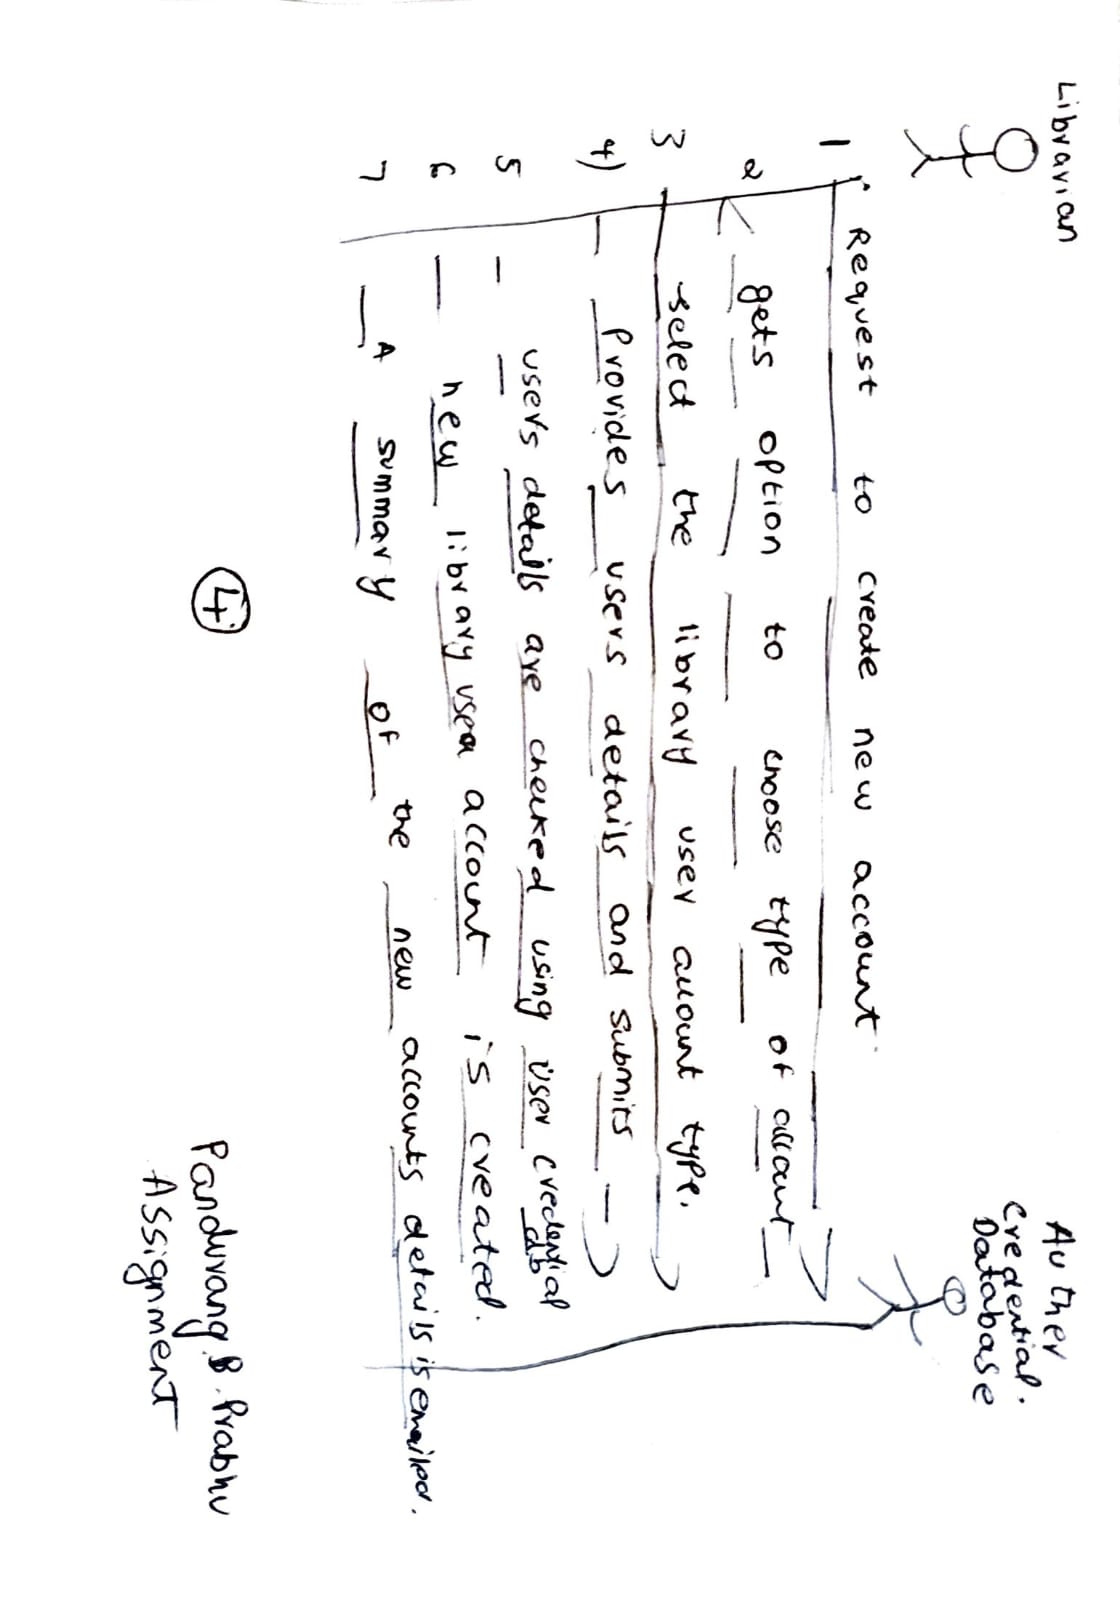 Librarian
Auther
credential.
Database
1 Request to create new account
2 gets option to choose type of account
3 select the library user account type.
4) Provides users details and submits
5 users details are checked using user credential
db
6 new library user account is created.
7 A summary of the new accounts details is emailed.
4
Pandurang B. Prabhu
Assignment